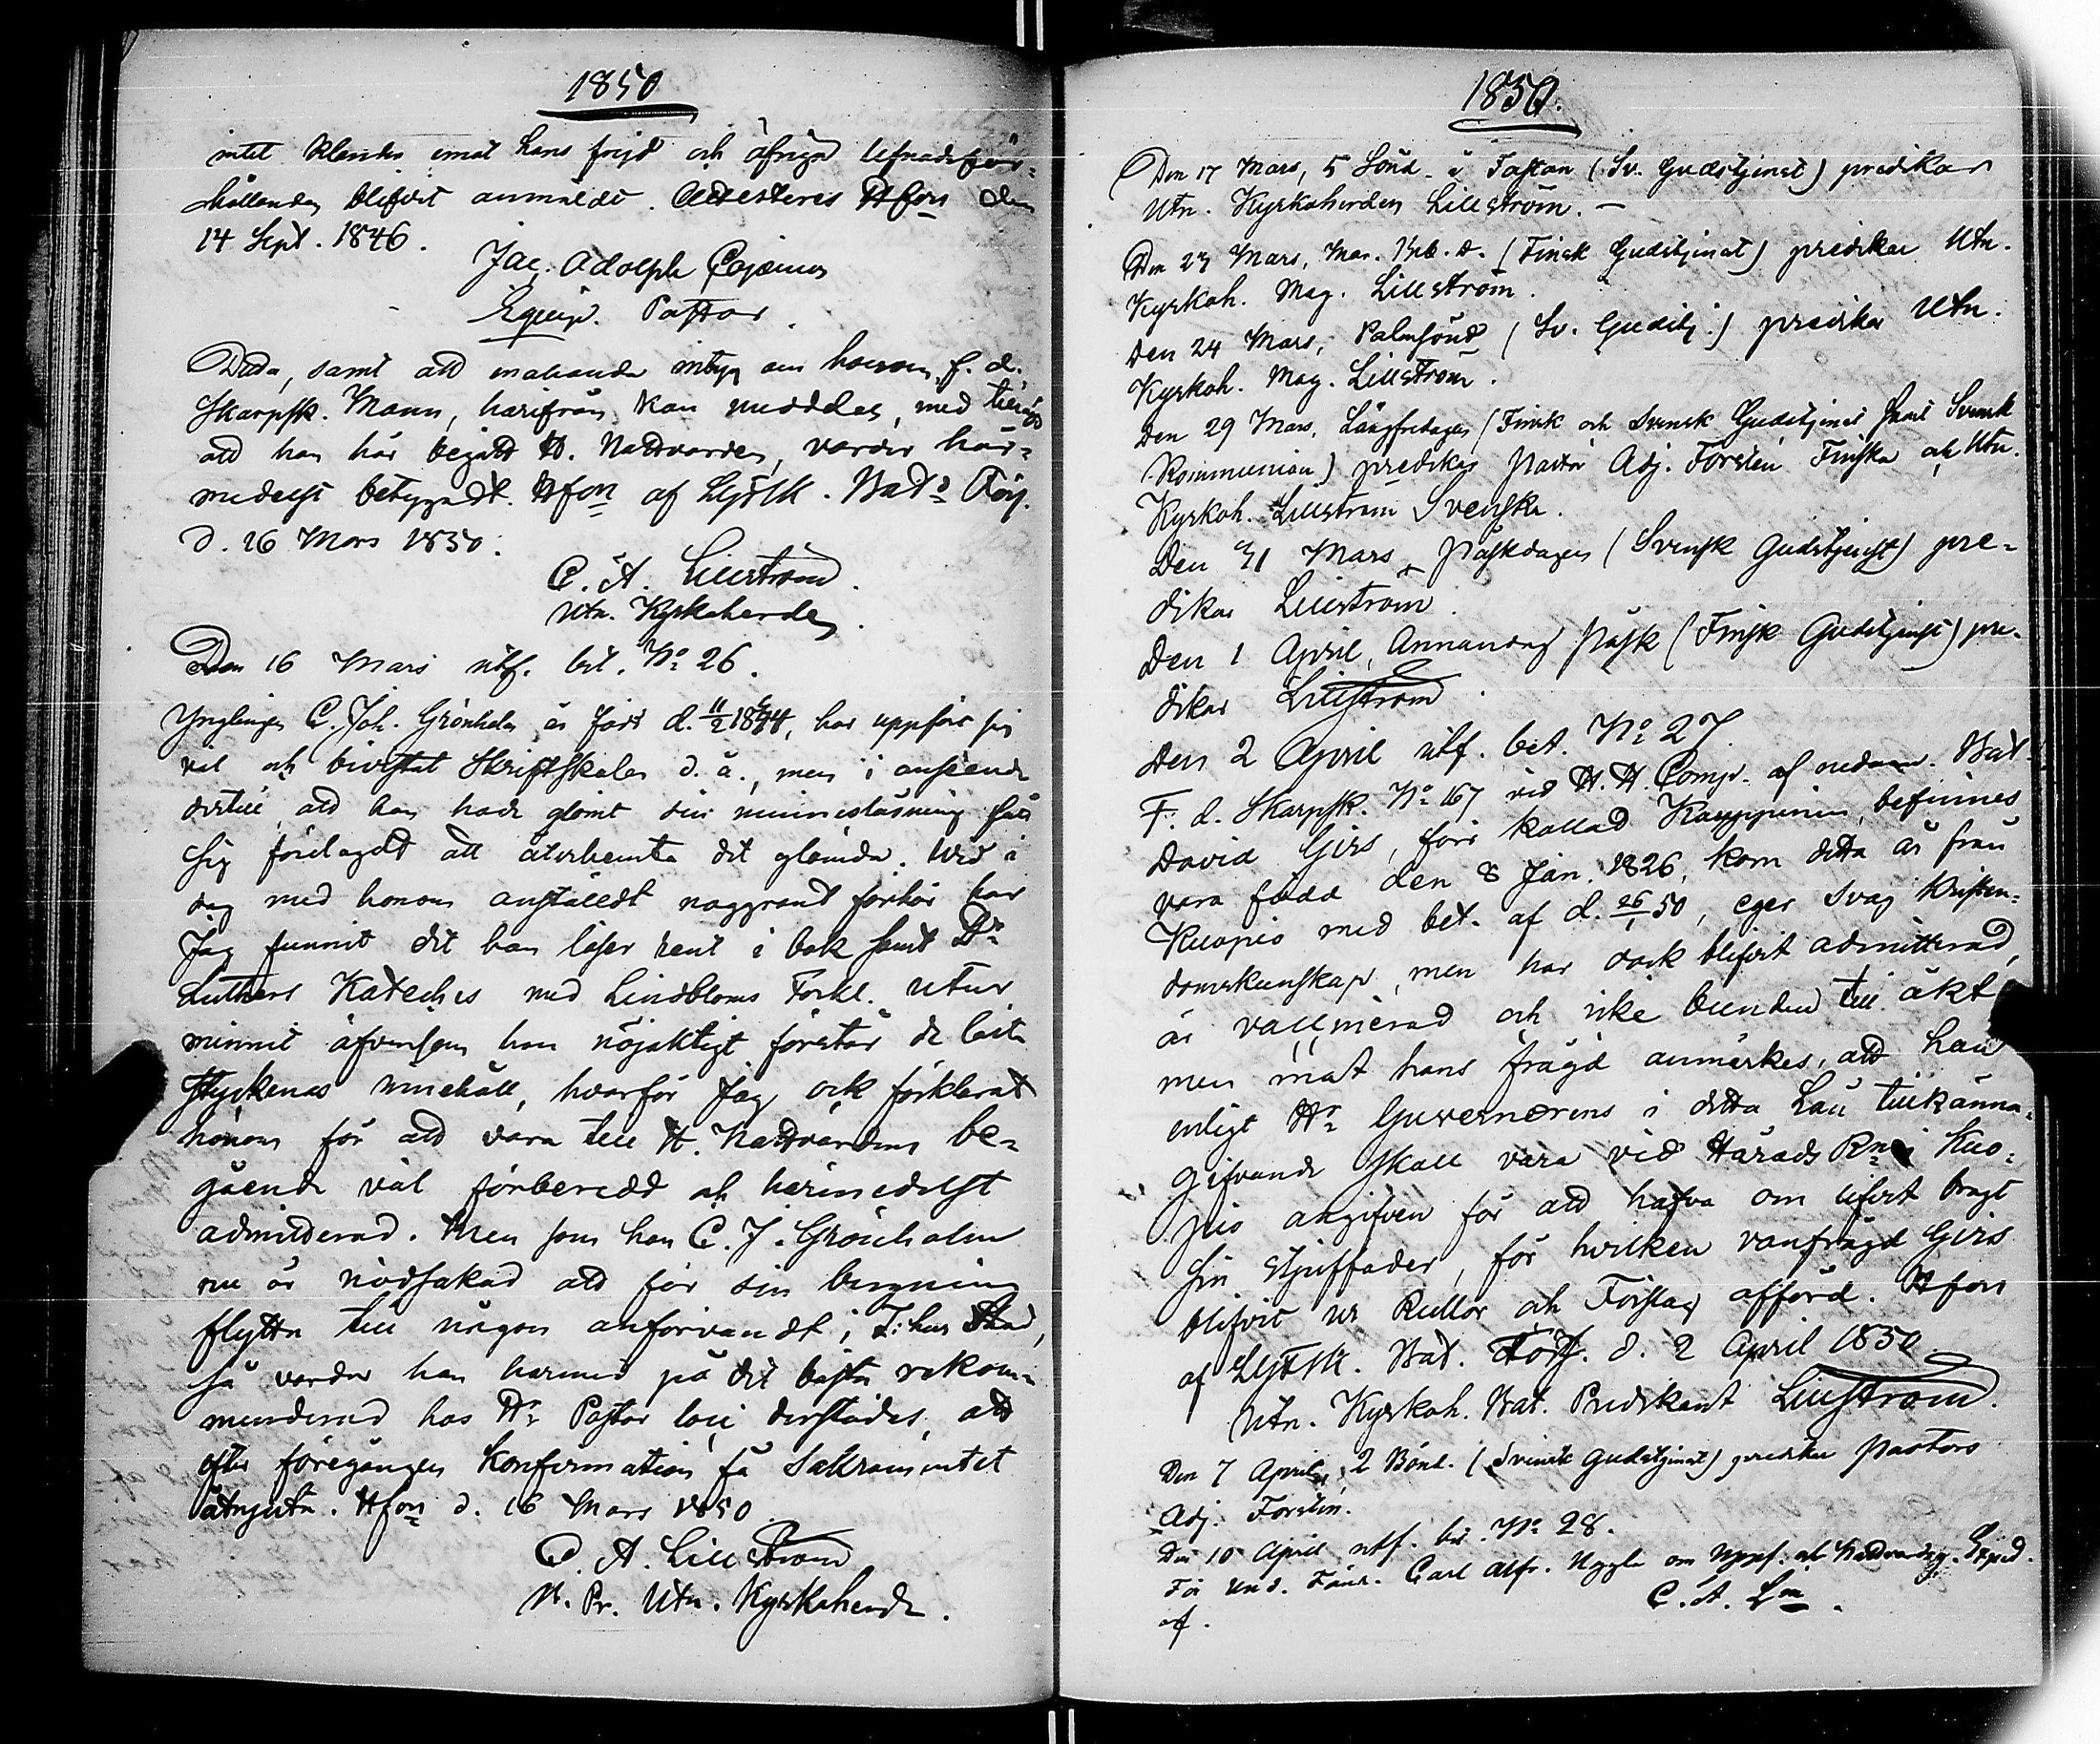 1850
intet klander emot hans frejd och öfriga lefnadsför-
hållanden blifvit anmäldt. Attesteres H:fors den
14 Sept. 1846.
Jac. Adolph Cajanus
Pastor.
Detta, samt att enahanda intyg om honom, f. d.
Skarpsk. Mann, härifrån kan meddelas, med tillägg
att han här begått H. Nattvarden, varder här-
medelst betygadt. H:fors af Lif. Sk. Bat:s Förs.
d. 16 Mars 1850.
C. A. Lillström
Utn. Kyrkoherde.
Den 16 Mars utf. bet. No 26.
Ynglingen C. Joh. Grönholm är född d. 11/2 1844, har uppfört sig
väl och bivistat Skriftskolan d. å., men i anseende
dertill, att han hade glömt sin minnesläsning fått
sig förelagdt att återhemta det glömda. Wid i
dag med honom anstäldt noggrant förhör har
Jag funnit det han läser rent i bok samt Dr
Luthers Kateches med Lindbloms Förkl. utur
minnet äfvensom han nöjaktigt förstår de lästa
styckenas innehåll, hvarför Jag ock förklarat
honom för att vara till H. Nattvardens be-
gående väl förberedd och härmedelst
admitterad. Men som han C. J. Grönholm
nu är nödsakad att för sin bergning
flytta till någon anförvandt i T:hus Stad,
så varder han härmed på det bästa rekom-
menderad hos Hr Pastor loci derstädes, att
efter föregången Konfirmation få Sakramentet
åtnjuta. H:fors d. 16 Mars 1850
C. A. Lillström
B. Pr. Utn. Kyrkoherde.
1850.
Den 17 Mars, 5 Sönd. i Fastan (Sv. Gudstjenst) predikar
Utn. Kyrkoherden Lillström.
Den 23 Mars, Mar. Beb. D. (Finsk Gudstjenst) predikar Utn.
Kyrkoh. Mag. Lillström.
Den 24 Mars, Palmsönd (Sv. Gudstj.) predikar Utn.
Kyrkoh. Mag. Lillström.
Den 29 Mars, Långfredagen (Finsk och Svensk Gudstjenst samt Svensk
Kommunion) predikar Pastor Adj. Forstén Finska och Utn.
Kyrkoh. Lillström Svenska.
Den 31 Mars, Påskdagen (Svensk Gudstjenst) pre-
dikar Lillström.
Den 1 April, Annandag Påsk (Finsk Gudstjenst) pre-
dikar Lillström
Den 2 April utf. bet. No 27.
F. d. Skarpsk. No 167 vid H. H. Comp. af nedann. Bat.
David Girs, förr kallad Kauppinen, befinnes
vara född den 8 Jan. 1826, kom detta år från
Kuopio med bet. af d. 26/1 50, eger svag Kristen-
domskunskap, men har dock blifvit admitterad,
är vaccinerad och icke bunden till äkt.
men mot hans frägd anmärkes, att han
enligt Hr Guvernörens i detta Län tillkänna-
gifvande skall vara vid Härads Rn i Kuo-
pio angifven för att hafva om lifvet bragt
sin styffader, för hvilken vanfrägd Girs
blifvit ur Rullor och Förslag afförd. H:fors
af Lif. Sk. Bat. Förs. d. 2 April 1850.
Utn. Kyrkoh. Bat. Predikant Lillström.
Den 7 April, 2 Bönd. (Svensk Gudstjenst) predikar Pastors
Adj. Forstén.
Den 10 April utf. bet. No 28.
För Und. Fänr. Carl Alfr. Uggla om uppf. och Nattvardsg. Exped.
af. C. A. Lm.